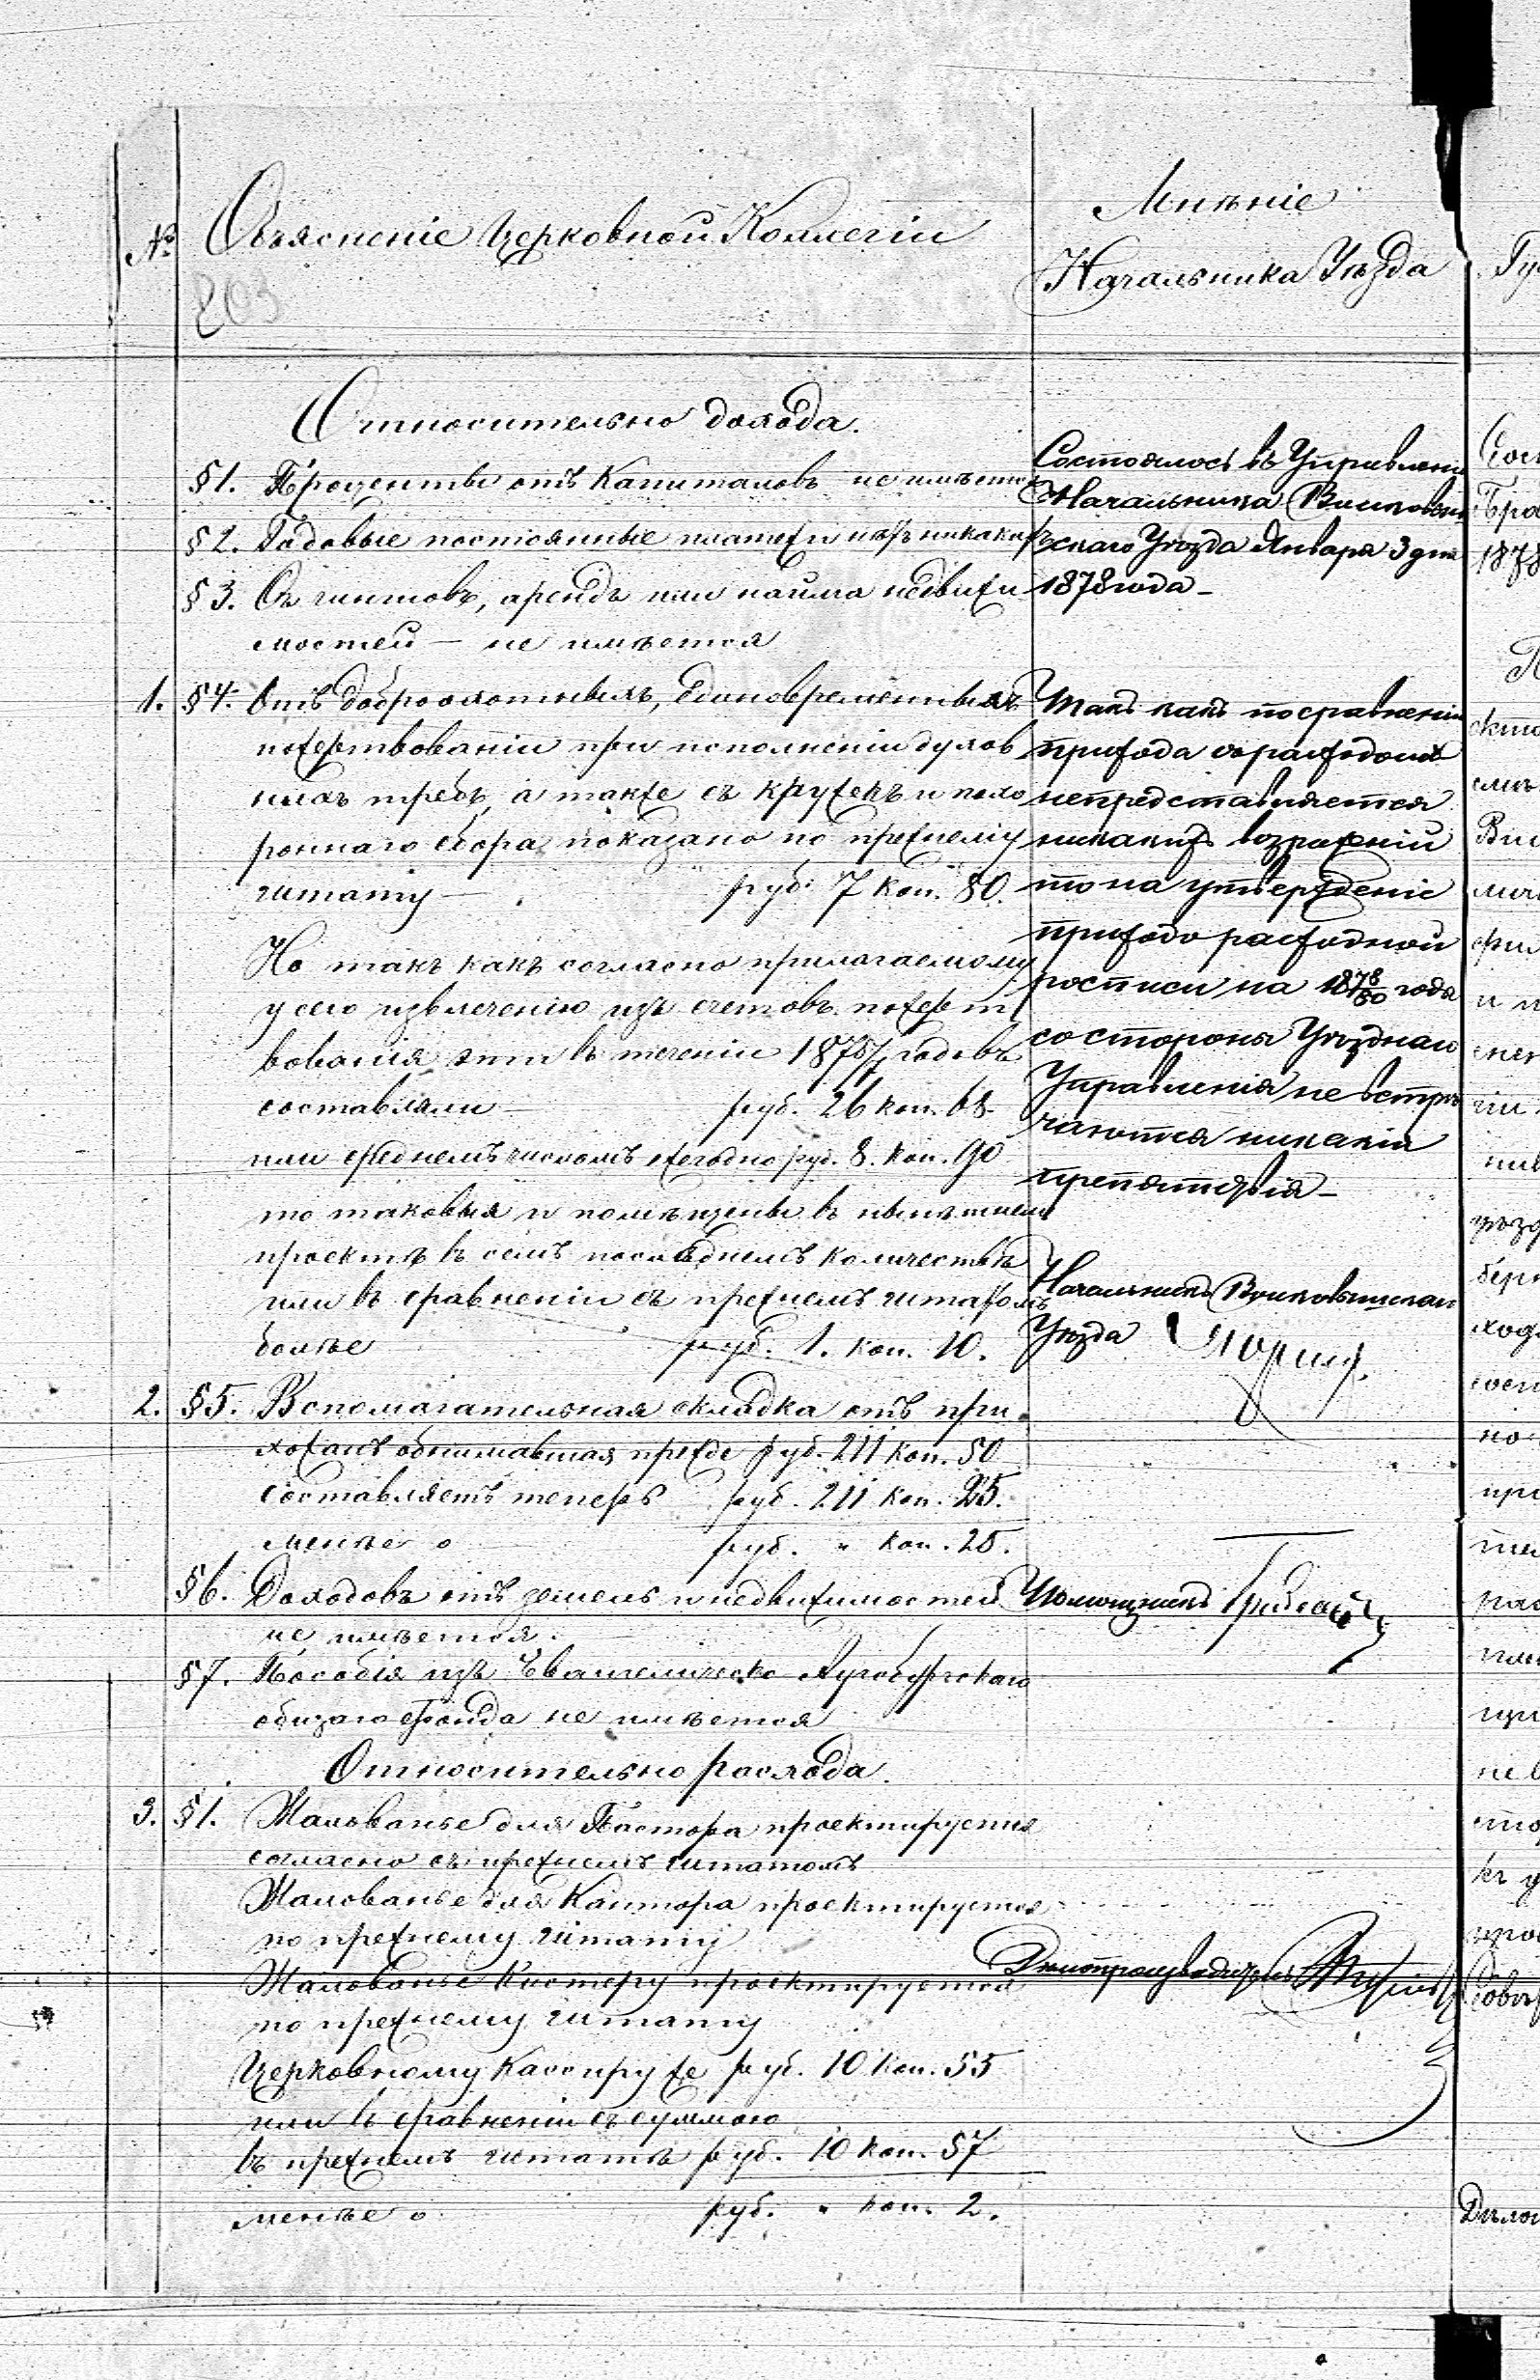 №
Объясненіе Церковной Коллегіи
203
Мнѣніе
Начальника Уѣзда
Относительно дохода.
§1. Проценты отъ Капиталовъ не имѣется
§2. Годовые постоянные платежи нѣтъ никакихъ
§3. Съ чиншовъ, арендъ или найма недвижи-
мостей — не имѣется
1. §4. Отъ доброхотныхъ, единовременныхъ
пожертвованій при исполненіи духов
ныхъ требъ, а также съ кружекъ и похо
роннаго сбора показано по прежнему
штату — руб. 7 коп. 80.
Но такъ какъ согласно прилагаемому
у сего извлеченію изъ счетовъ пожерт
вованія эти въ теченіи 1875/7 годовъ
составляли — руб. 26 коп. 68.
или среднемъ числомъ ежегодно руб. 8. коп. 90
то таковыя и помѣщены въ нынѣшнемъ
проектѣ въ семъ послѣднемъ количествѣ
или въ сравненіи съ прежнемъ штатомъ
болѣе руб. 1. коп. 10.
2. §5. Вспомагательная складка отъ при
хожанъ обнимавшая прежде руб. 211 коп. 50
составляетъ теперь руб. 211 коп. 25.
менѣе о руб. „ коп. 25.
§6. Доходовъ отъ земель и недвижимостей
не имѣется.
§7. Пособія изъ Евангелическо Аугсбургскаго
общаго Фонда не имѣется
Относительно расхода.
3. §1. Жалованье для Пастора проектируется
согласно съ прежнемъ штатомъ
Жалованье для Кантора проектируется
по прежнему штату
Жалованье Кистеру проектируется
по прежнему штату
Церковному Кассиру же руб. 10 коп. 55
или въ сравненіи съ суммою
въ прежнемъ штатѣ руб. 10 коп. 57
менѣе о руб. „ коп. 2.
Состоялось въ Управленіи
Начальника Вилковыш
скаго Уѣзда Января 3 дня
1878 года —
Такъ какъ по сравненіи
прихода съ расходомъ
непредставляется
никакихъ возраженій
то на утвержденіе
приходо расходной
росписи на 1878/80 года
со стороны Уѣзднаго
Управленія не встрѣ
чаются никакія
препятствія —
Начальникъ Волковышскаго
Уѣзда
Помощникъ
Дѣлопроизводитель
1878